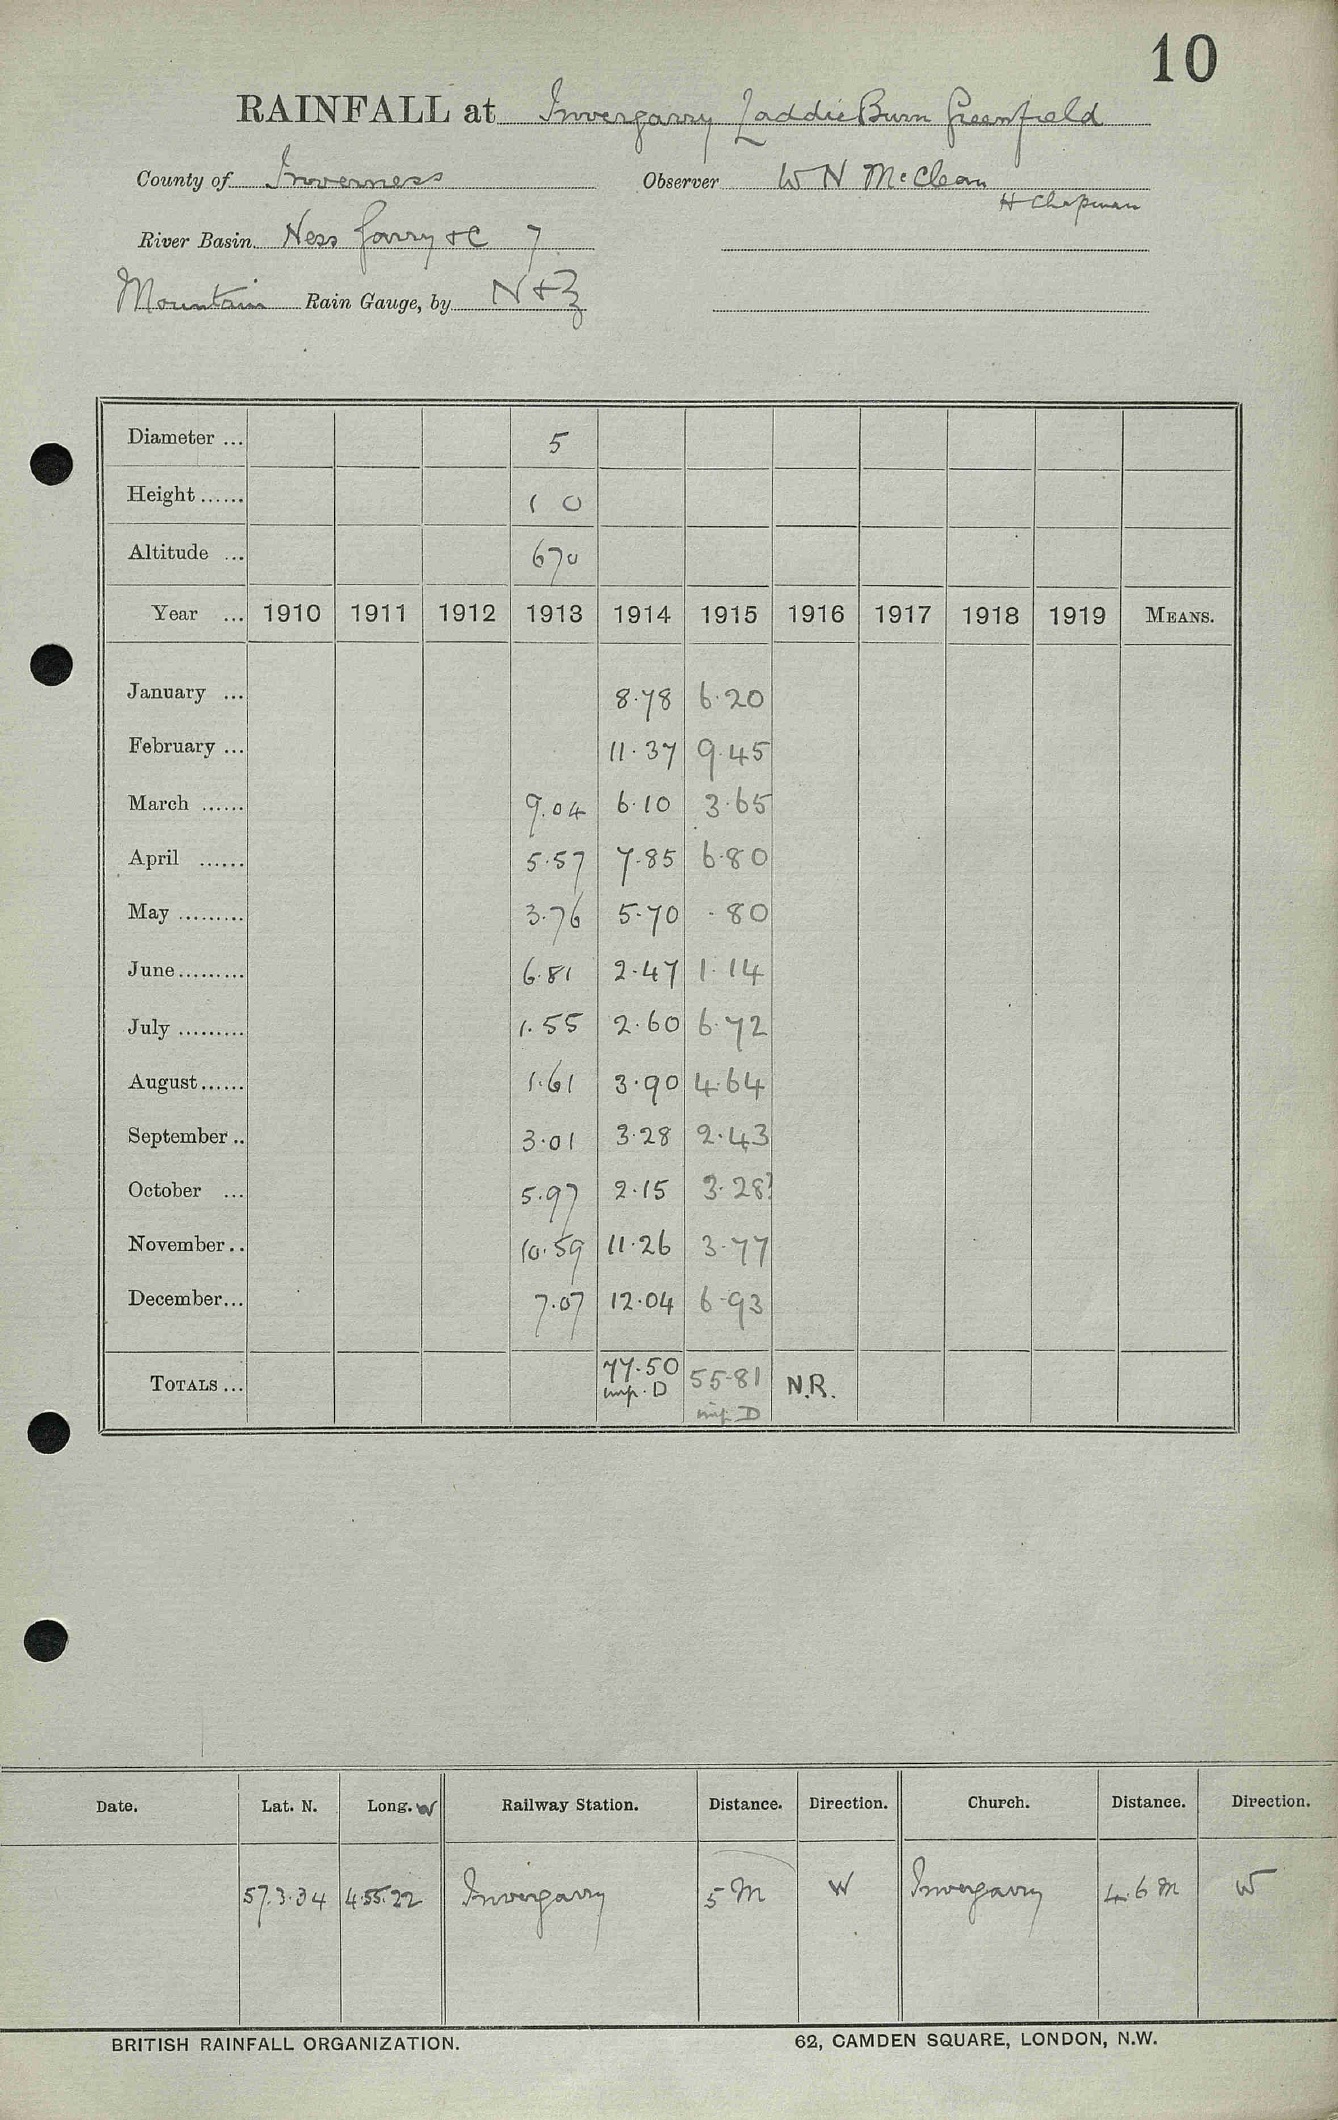 10
RAINFALL at Invergarry Laddie Burn Greenfield
County of Inverness Observer W N McClean
H Chapman
River Basin. Ness Garry &c 7
Mountain Rain Gauge, by N & Z
Diameter ... 5
Height ...... 1 0
Altitude ... 670
Year ... 1910 1911 1912 1913 1914 1915 1916 1917 1918 1919 MEANS.
January ... 8.78 6.20
February ... 11.37 9.45
March ...... 9.04 6.10 3.65
April ...... 5.57 7.85 6.80
May ......... 3.76 5.70 .80
June ......... 6.81 2.47 1.14
July ......... 1.55 2.60 6.72
August ...... 1.61 3.90 4.64
September .. 3.01 3.28 2.43
October ... 5.97 2.15 3.28?
November .. 10.59 11.26 3.77
December ... 7.07 12.04 6.93
TOTALS ... 77.50 55.81 N.R.
imp. D imp. D
Date. Lat. N. Long. W Railway Station. Distance. Direction. Church. Distance. Direction.
57.3.34 4.55.22 Invergarry 5 M W Invergarry 4.6 M W
BRITISH RAINFALL ORGANIZATION. 62, CAMDEN SQUARE, LONDON, N.W.